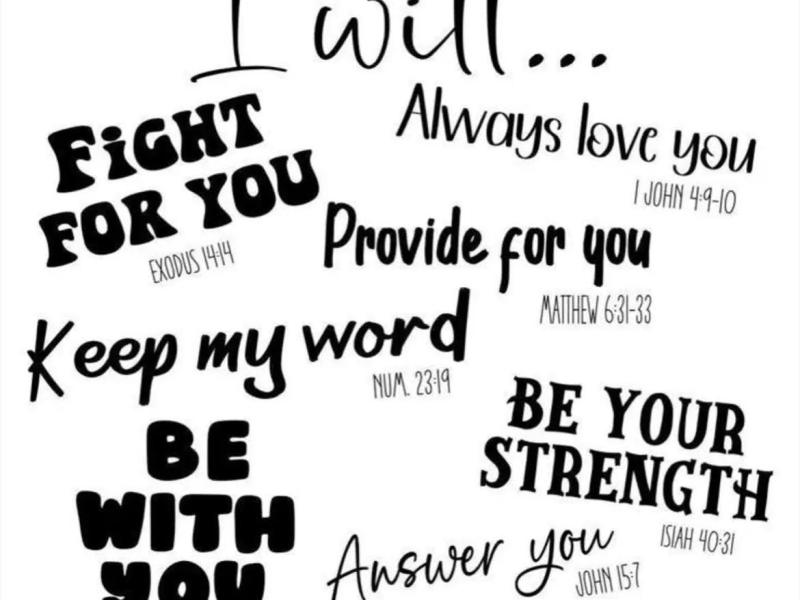 I will...
FiGHT
FOR YOU
EXODUS 14:14
Always love you
1 JOHN 4:9-10
Provide for you
MATTHEW 6:31-33
Keep my word
NUM. 23:19
BE YOUR
STRENGTH
ISIAH 40:31
BE
WITH
YOU
Answer you
JOHN 15:7